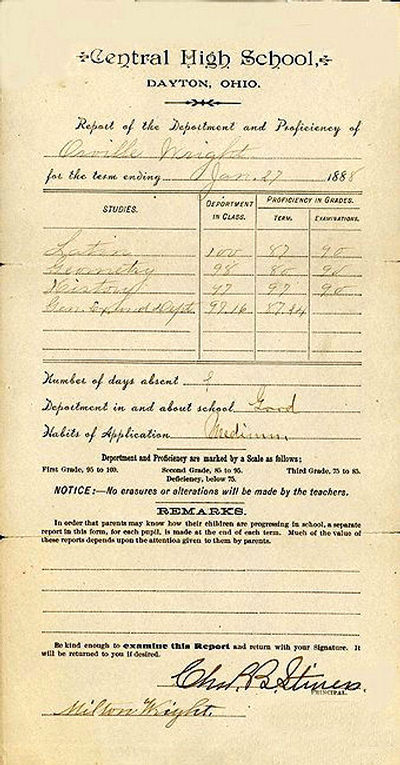 Central High School,
DAYTON, OHIO.
Report of the Deportment and Proficiency of
Orville Wright
for the term ending Jan. 27 1888
STUDIES. DEPORTMENT IN CLASS. PROFICIENCY IN GRADES.
TERM. EXAMINATIONS.
Latin 100 87 90
Geometry 98 80 94
History 97 97 90
Gen. and Dept. 97.16 87.34
Number of days absent
Department in and about school Good
Habits of Application Medium.
Department and Proficiency are marked by a Scale as follows;
First Grade, 95 to 100. Second Grade, 85 to 95. Third Grade, 75 to 85.
Deficiency, below 75.
NOTICE:—No erasures or alterations will be made by the teachers.
REMARKS.
In order that parents may know how their children are progressing in school, a separate
report in this form, for each pupil, is made at the end of each term. Much of the value of
these reports depends upon the attention given to them by parents.
Be kind enough to examine this Report and return with your Signature. It
will be returned to you if desired.
Chas. B. Stivers.
PRINCIPAL.
Milton Wright.